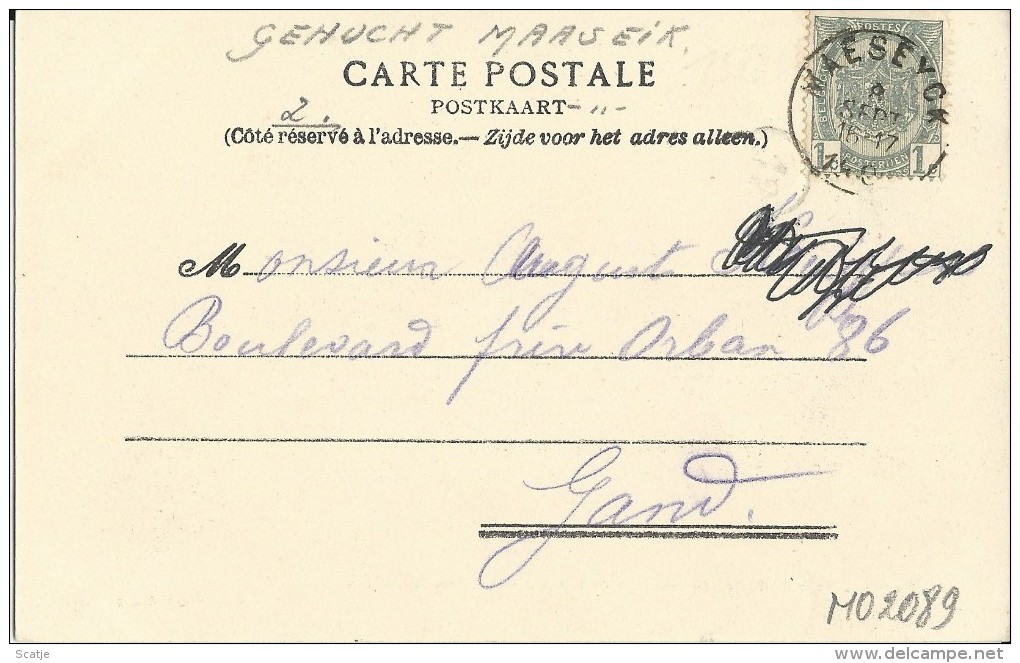 GEHUCHT MAASEIK.
CARTE POSTALE
POSTKAART -"-
2.
(Côté réservé à l'adresse.— Zijde voor het adres alleen.)
POSTES
MAESEYCK
8
SEPT
16-17
1 POSTERIJEN 1
Monsieur August
Boulevard frère Orban 86
Gand.
MO2089
Scatje
delcampe.net